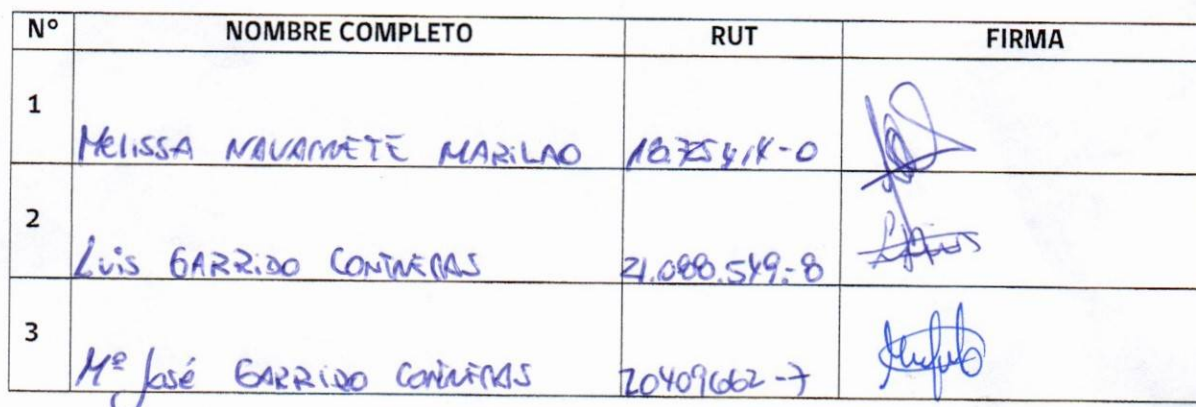 N° NOMBRE COMPLETO RUT FIRMA
1 Melissa NAVARRETE MARILAO
2 Luis GARRIDO CONTRERAS 21.088.549-8
3 Mª José GARRIDO CONTRERAS 20409662-7